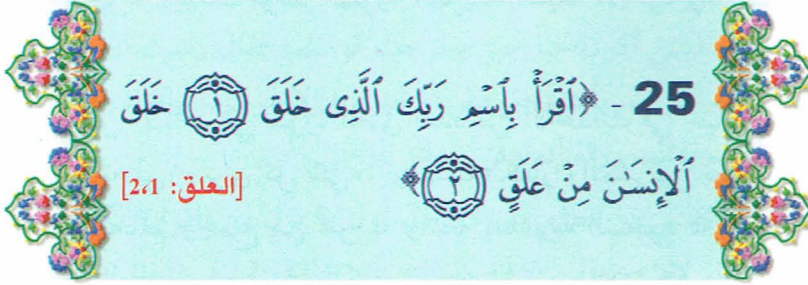 25 - ﴿ٱقۡرَأۡ بِٱسۡمِ رَبِّكَ ٱلَّذِى خَلَقَ ۝١ خَلَقَ
ٱلۡإِنسَـٰنَ مِنۡ عَلَقٍ ۝٢﴾ [العلق: 2،1]